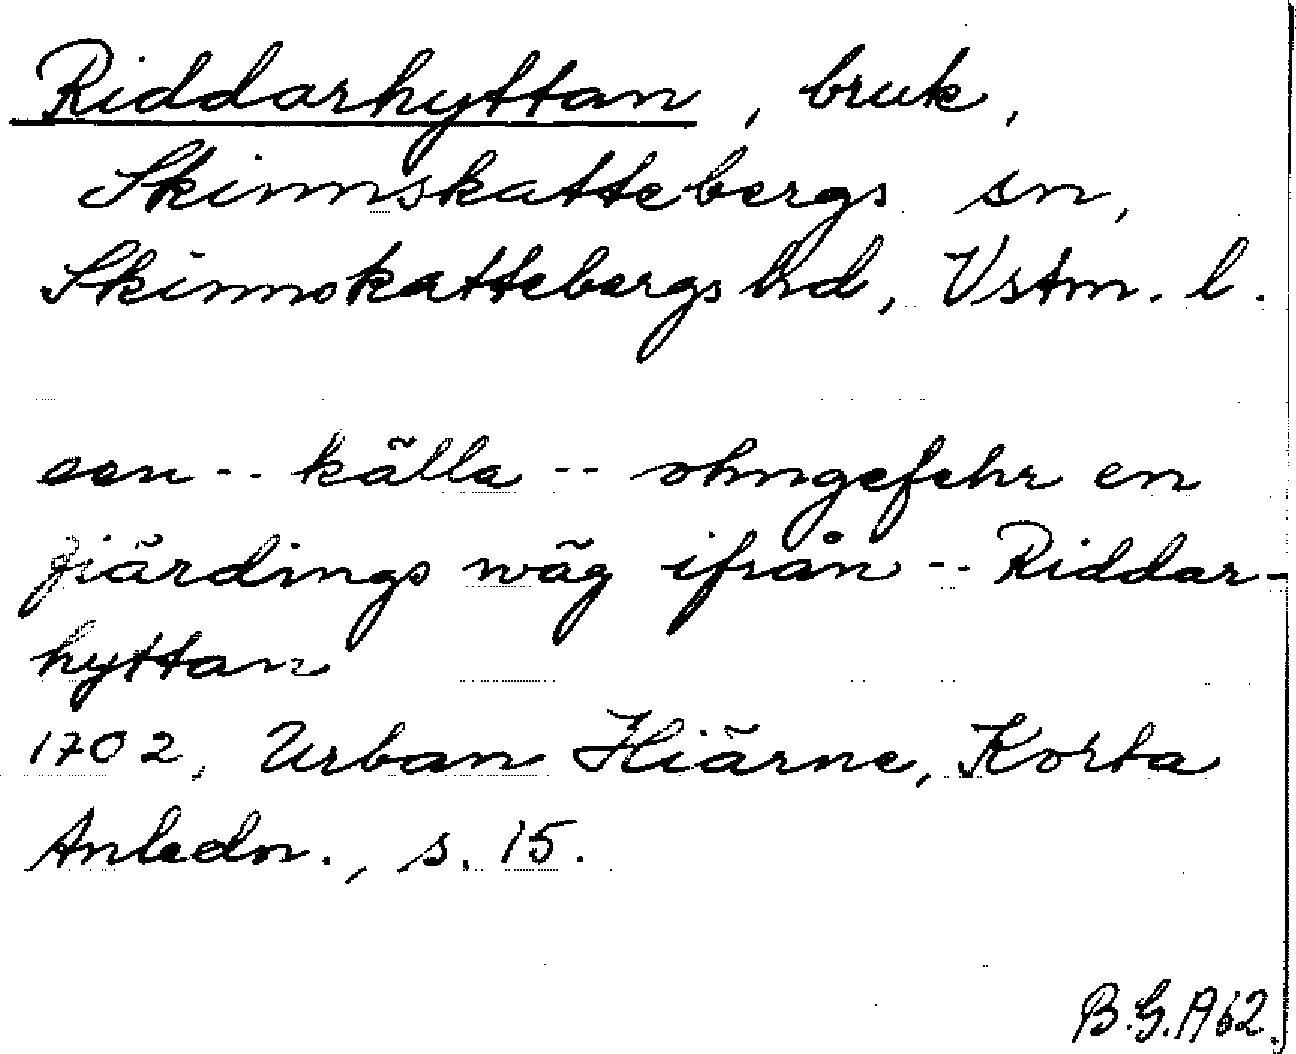 Riddarhyttan, bruk,
Skinnskattebergs sn,
Skinnskattebergs hd, Vstm. l.
een -- källa -- ohngefehr en
fjärdings wäg ifrån -- Riddar-
hyttan
1702, Urban Hiärne, Korta
Anledn., s. 15.
B.G.A62.